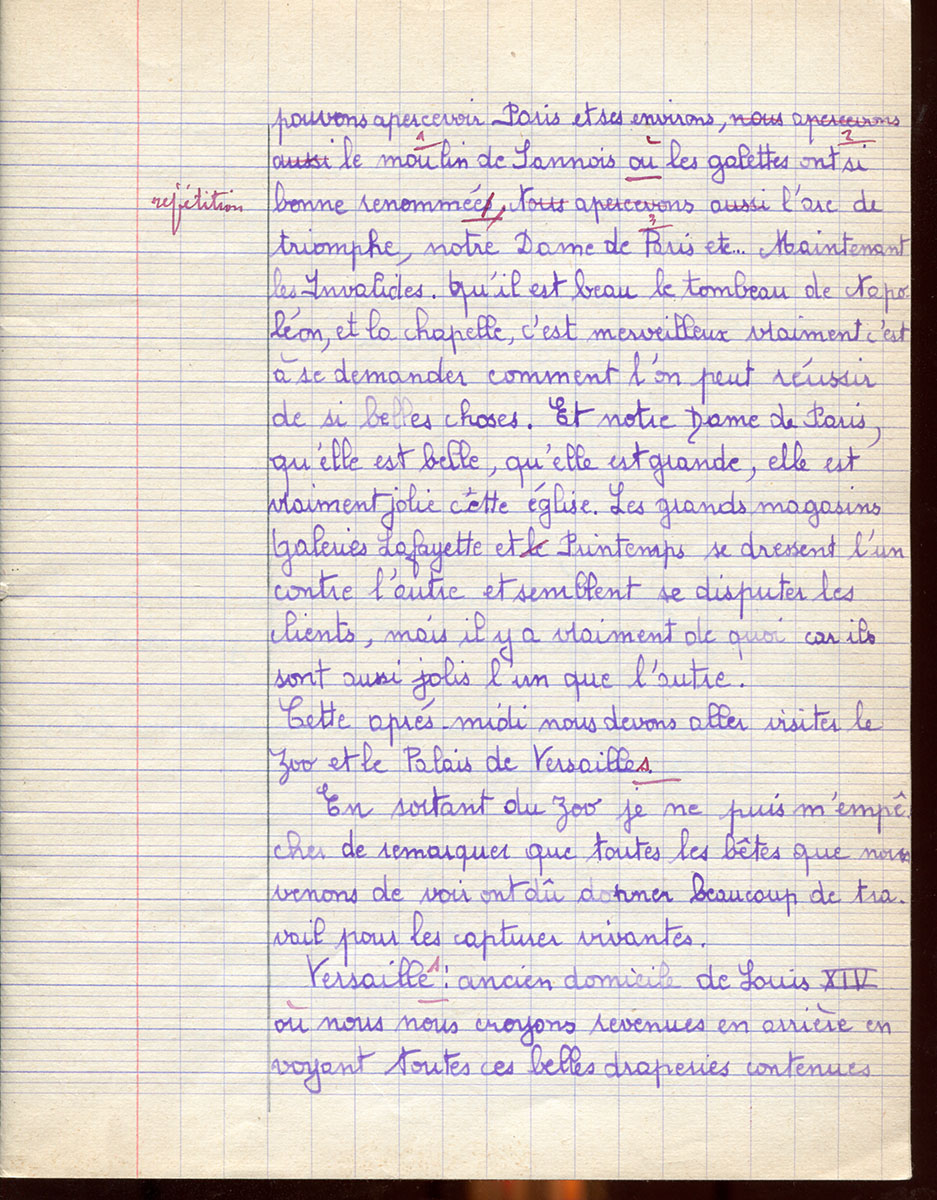 pouvons apercevoir Paris et ses environs, nous apercevrons
aussi le moulin de Sannois où les galettes ont si
répétition bonne renommée, Nous apercevons aussi l'arc de
triomphe, notre Dame de Paris etc... Maintenant
les Invalides. Qu'il est beau le tombeau de Napo-
léon, et la chapelle, c'est merveilleux vraiment c'est
à se demander comment l'on peut réussir
de si belles choses. Et notre Dame de Paris,
qu'elle est belle, qu'elle est grande, elle est
vraiment jolie cette église. Les grands magasins
Galeries Lafayette et le Printemps se dressent l'un
contre l'autre et semblent se disputer les
clients, mais il y a vraiment de quoi car ils
sont aussi jolis l'un que l'autre.
Cette après-midi nous devons aller visiter le
Zoo et le Palais de Versailles.
En sortant du Zoo je ne puis m'empê-
cher de remarquer que toutes les bêtes que nous
venons de voir ont dû donner beaucoup de tra-
vail pour les capturer vivantes.
Versailles : ancien domicile de Louis XIV
où nous nous croyons revenues en arrière en
voyant toutes ces belles draperies contenues